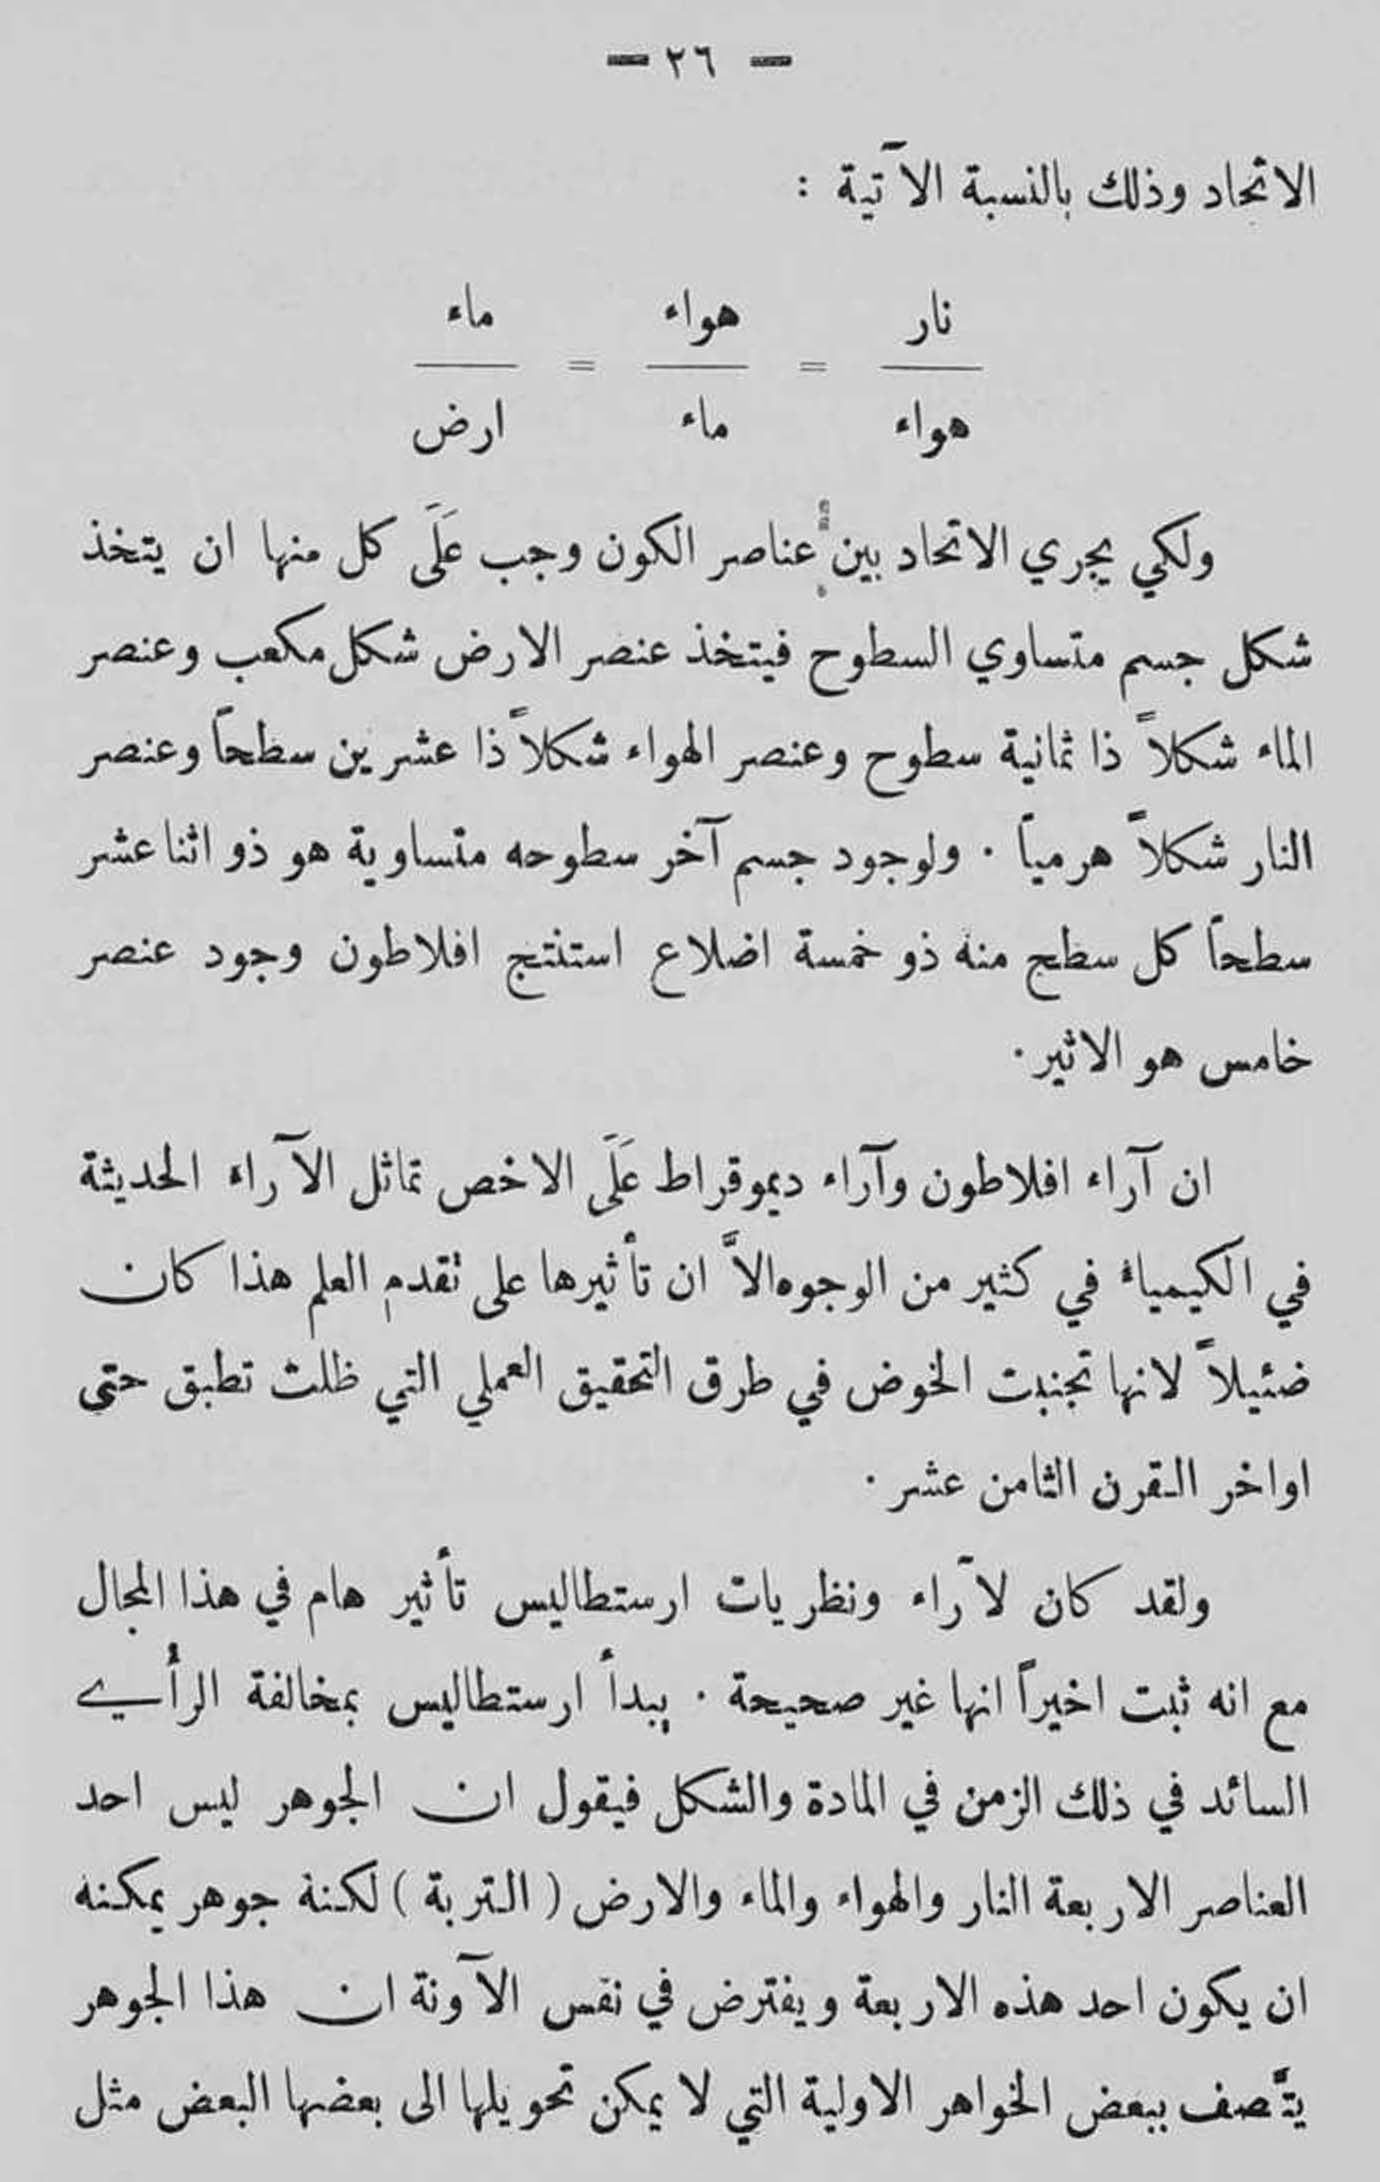 — ٢٦ —
الاتحاد وذلك بالنسبة الآتية :
نار هواء ماء
— = — = —
هواء ماء ارض
ولكي يجري الاتحاد بين عناصر الكون وجب عَلَى كل منها ان يتخذ
شكل جسم متساوي السطوح فيتخذ عنصر الارض شكل مكعب وعنصر
الماء شكلاً ذا ثمانية سطوح وعنصر الهواء شكلاً ذا عشرين سطحاً وعنصر
النار شكلاً هرمياً . ولوجود جسم آخر سطوحه متساوية هو ذو اثنا عشر
سطحاً كل سطح منه ذو خمسة اضلاع استنتج افلاطون وجود عنصر
خامس هو الاثير .
ان آراء افلاطون وآراء ديموقراط عَلَى الاخص تماثل الآراء الحديثة
في الكيمياء في كثير من الوجوه الاَّ ان تأثيرها على تقدم العلم هذا كان
ضئيلاً لانها تجنبت الخوض في طرق التحقيق العملي التي ظلت تطبق حتى
اواخر القرن الثامن عشر .
ولقد كان لآراء ونظريات ارستطاليس تأثير هام في هذا المجال
مع انه ثبت اخيراً انها غير صحيحة . يبدأ ارستطاليس بمخالفة الرأي
السائد في ذلك الزمن في المادة والشكل فيقول ان الجوهر ليس احد
العناصر الاربعة النار والهواء والماء والارض ( التربة ) لكنه جوهر يمكنه
ان يكون احد هذه الاربعة ويفترض في نفس الآونة ان هذا الجوهر
يتَّصف ببعض الخواهر الاولية التي لا يمكن تحويلها الى بعضها البعض مثل